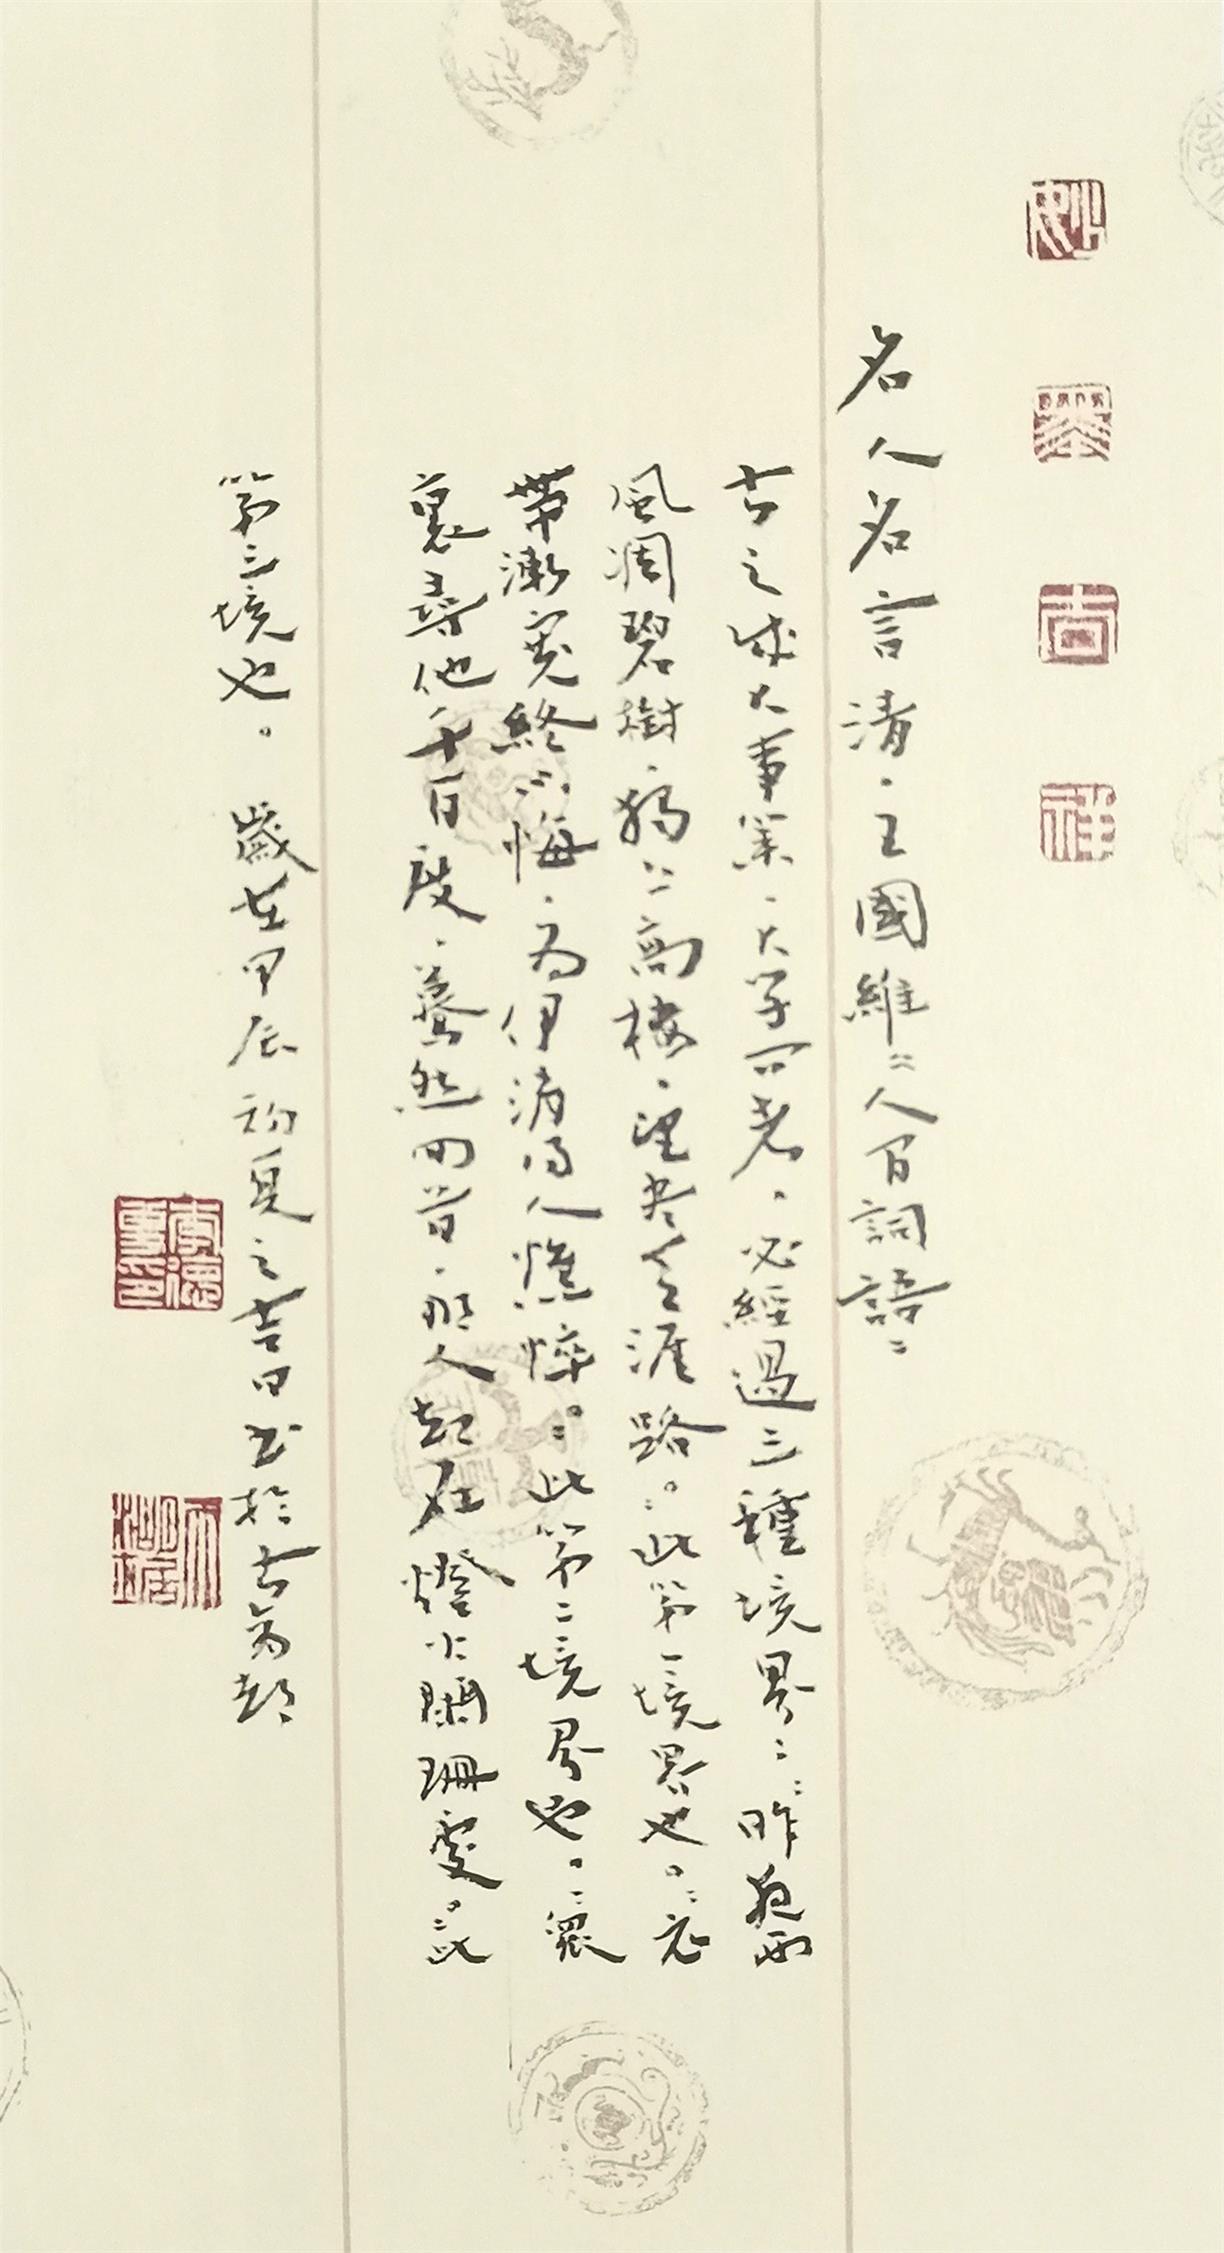 名人名言 清·王國維《人间詞語》
古之成大事業、大学问者，必經過三種境界："昨夜西
風凋碧樹，獨上高樓，望尽天涯路。"此第一境界也。"衣
帶漸寬終不悔，为伊消得人憔悴。"此第二境界也。"衆
裏尋他千百度，驀然回首，那人却在燈火闌珊處。"此
第三境也。 歲在甲辰初夏之吉日书於古商都
吉
祥